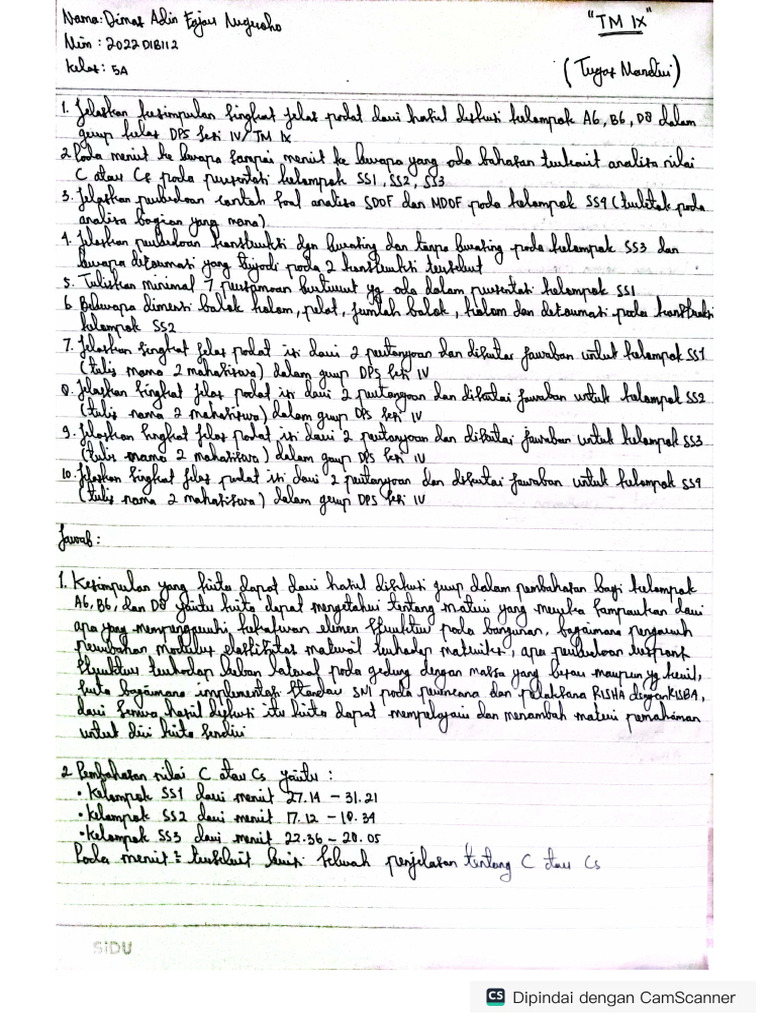 Nama: Dimas Adin Fajar Nugroho
"TM IX"
Nim : 2022D1B112
Kelas : 5A
(Tugas Mandiri)
1. Jelaskan kesimpulan singkat jelas padat dari hasil diskusi kelompok A6, B6, D8 dalam
group kelas DPS sesi IV/TM IX
2. Pada menit ke berapa sampai menit ke berapa yang ada bahasan terkait analisa nilai
C atau Cs pada presentasi kelompok SS1, SS2, SS3
3. Jelaskan perbedaan contoh soal analisa SDOF dan MDOF pada kelompok SS4 (terletak pada
analisa bagian yang mana)
4. Jelaskan perbedaan konstruksi dgn bracing dan tanpa bracing pada kelompok SS3 dan
berapa deformasi yang terjadi pada 2 konstruksi tersebut
5. Tuliskan minimal 7 persamaan berturut yg ada dalam presentasi kelompok SS1
6. Beberapa dimensi balok kolom, pelat, jumlah balok, kolom dan deformasi pada konstruksi
kelompok SS2
7. Jelaskan singkat jelas padat isi dari 2 pertanyaan dan diskusi jawaban untuk kelompok SS1
(tulis nama 2 mahasiswa) dalam group DPS sesi IV
8. Jelaskan singkat jelas padat isi dari 2 pertanyaan dan diskusi jawaban untuk kelompok SS2
(tulis nama 2 mahasiswa) dalam group DPS sesi IV
9. Jelaskan singkat jelas padat isi dari 2 pertanyaan dan diskusi jawaban untuk kelompok SS3
(tulis nama 2 mahasiswa) dalam group DPS sesi IV
10. Jelaskan singkat jelas padat isi dari 2 pertanyaan dan diskusi jawaban untuk kelompok SS4
(tulis nama 2 mahasiswa) dalam group DPS sesi IV
Jawab :
1. Kesimpulan yang kita dapat dari hasil diskusi group dalam pembahasan bagi kelompok
A6, B6, dan D8 yaitu kita dapat mengetahui tentang materi yang mereka sampaikan dari
apa yang mempengaruhi kekakuan elemen struktur pada bangunan, bagaimana pengaruh
perubahan modulus elastisitas material terhadap, apa perbedaan respons
struktur terhadap beban lateral pada gedung dengan massa yang besar maupun yg kecil,
serta bagaimana implementasi standar SNI pada perencana dan pelaksana RISHA dengan RISBA,
dari semua hasil diskusi itu kita dapat mempelajari dan menambah materi pemahaman
untuk diri kita sendiri
2 Pembahasan nilai C atau Cs yaitu :
• Kelompok SS1 dari menit 27.14 - 31.21
• Kelompok SS2 dari menit 17.12 - 18.34
• Kelompok SS3 dari menit 22.36 - 28.05
Pada menit² tersebut berisi sebuah penjelasan tentang C atau Cs
SiDU
CS Dipindai dengan CamScanner